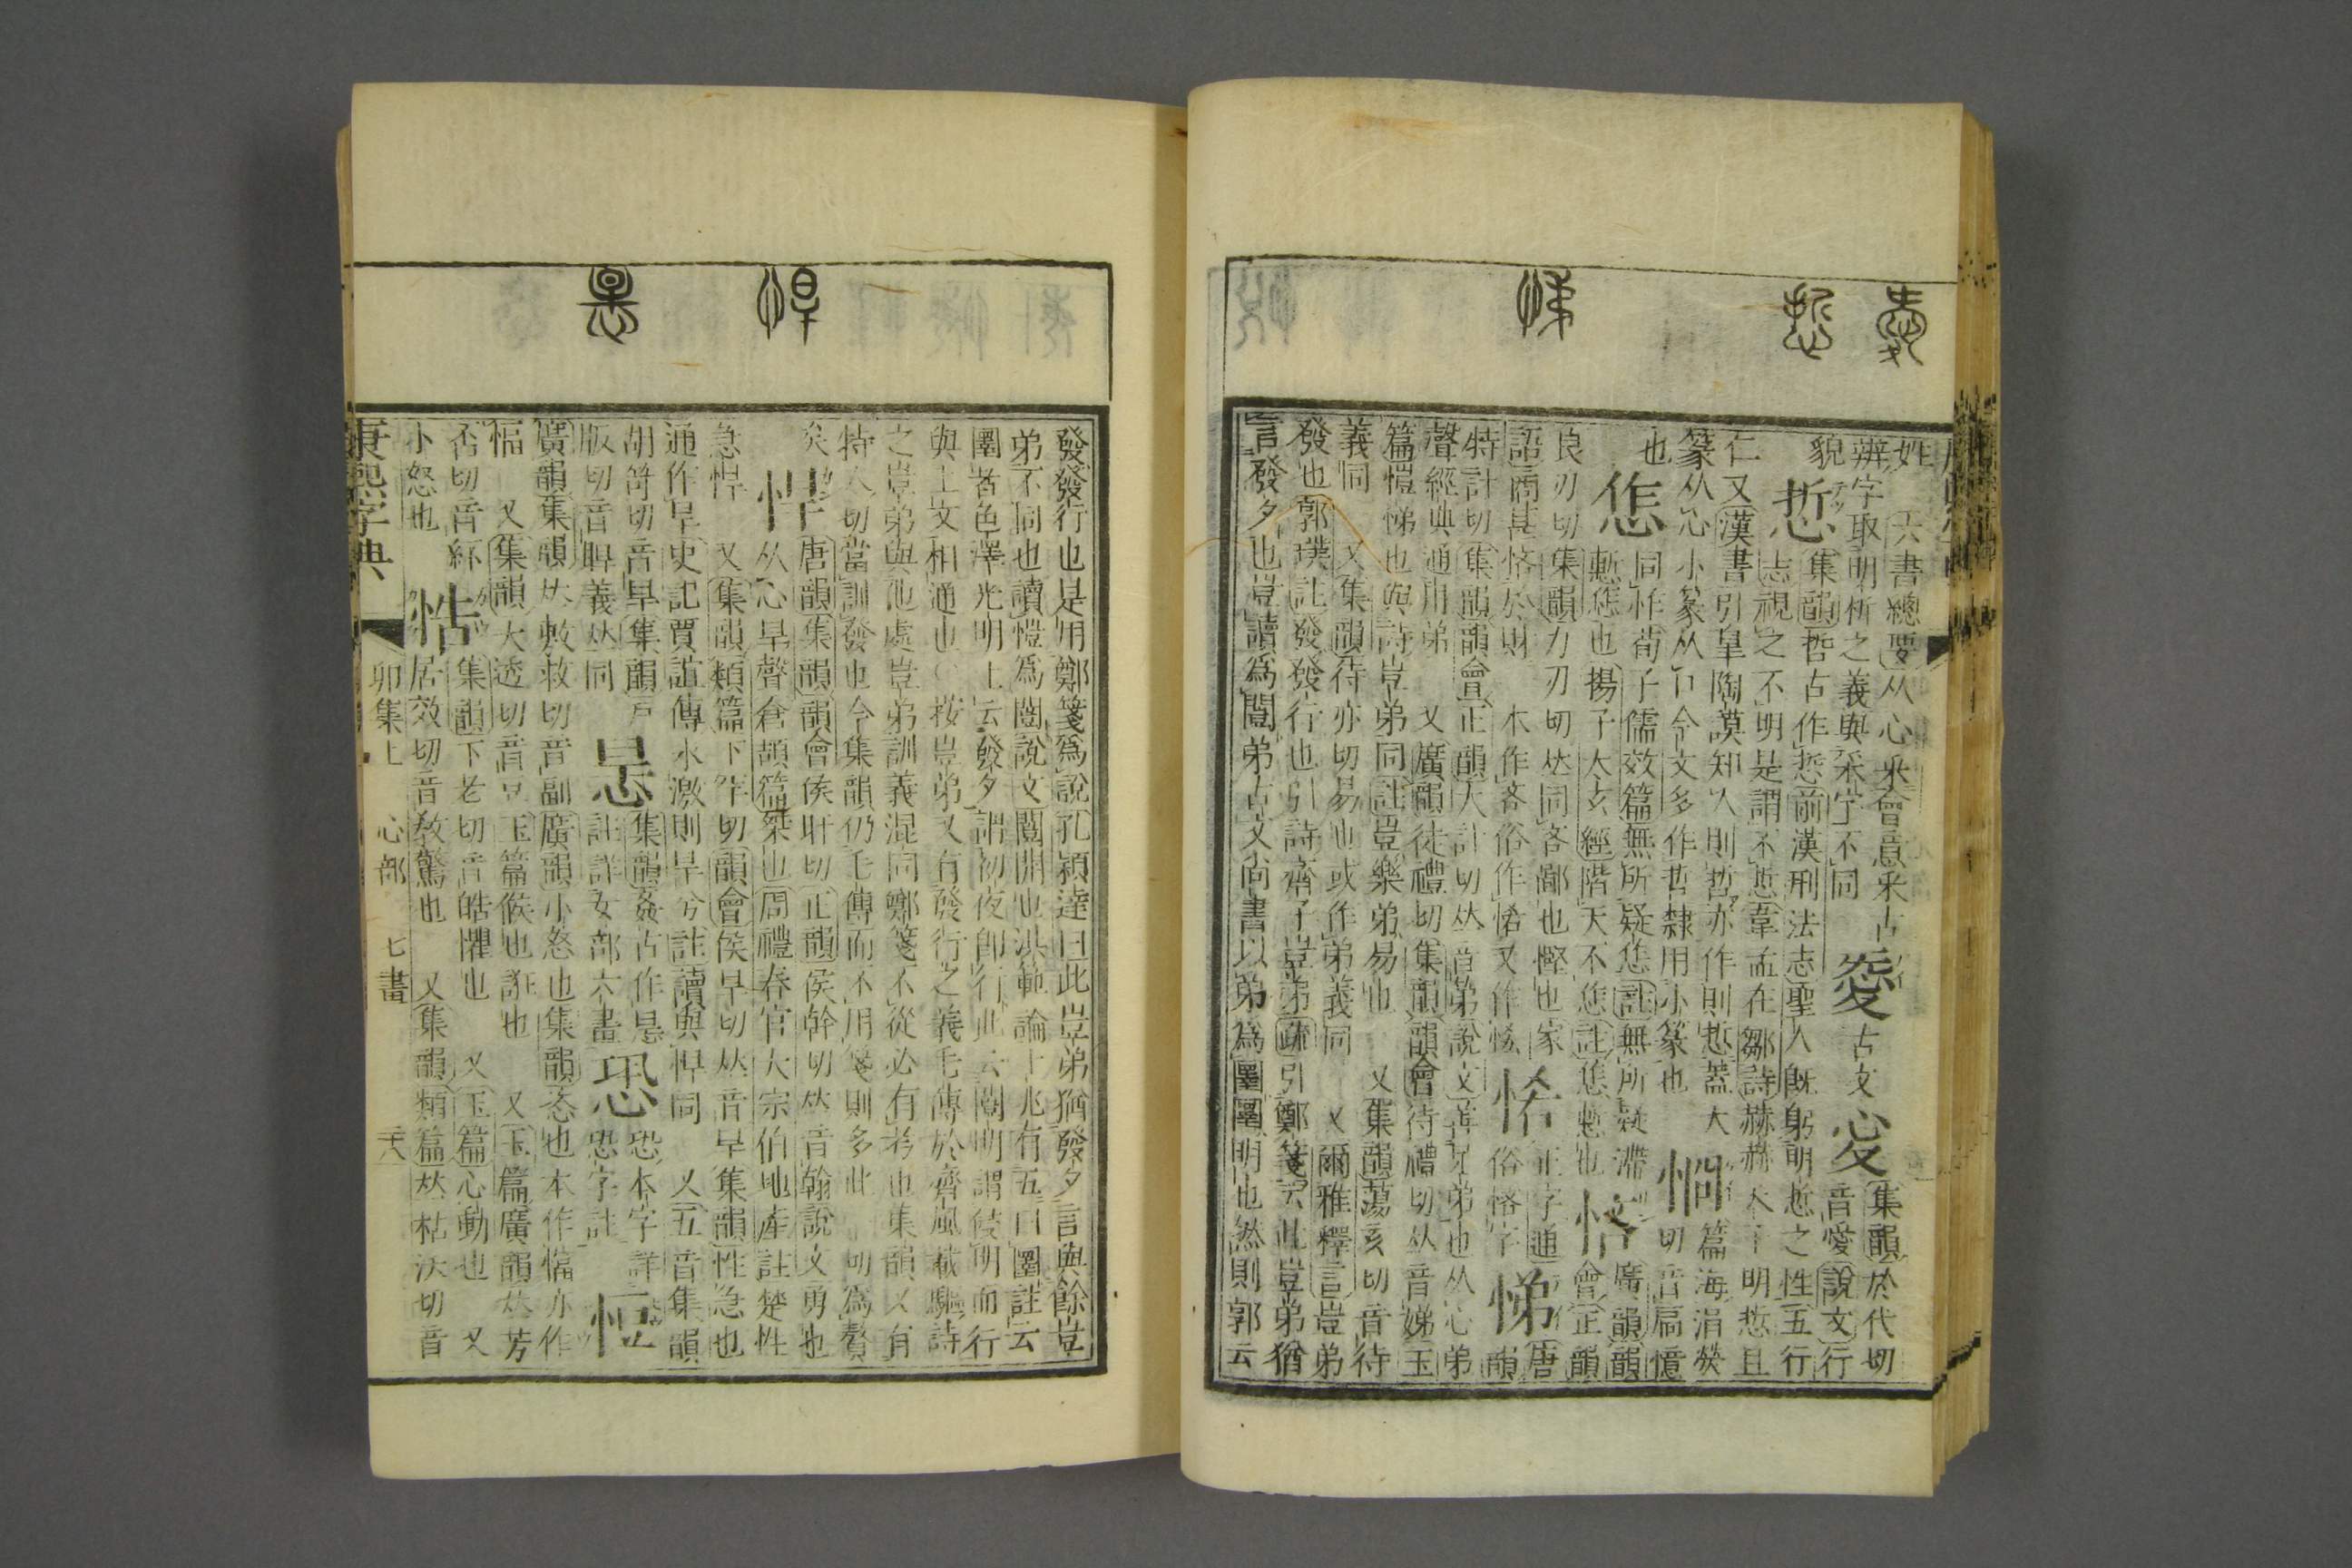 姓 六書總要从心釆會意釆古
辨字取明析之義與采字不同 㤅 古文 㤅 集韻於代切
貌 音愛說文行
悊 集韻哲古作悊前漢刑法志聖人旣躬明悊之性五行
志視之不明是謂不悊韋孟在鄒詩赫赫天子明悊且
仁又漢書引皐陶謨知人則哲亦作則悊蓋大
篆从心小篆从口今文多作哲隸用小篆也 悁
也 怎 同怍荀子儒效篇無所疑㤰註無所疑滯
慙㤰也揚子太玄經階天不㤰註㤰慙也 悋 會正韻
良刃切集韻力刃切𠀤同吝鄙也慳也家
語商甚悋於財 本作吝俗作悋又作恡 俗悋字 悌
特計切集韻韻會正韻大計切𠀤音第說文善兄弟也从心弟
聲經典通用弟 又廣韻徒禮切集韻韻會待禮切𠀤音娣玉
篇愷悌也與詩豈弟同註豈樂弟易也 又集韻蕩亥切音待
義同 又集韻待亦切易也或作弟義同 又爾雅釋言豈弟
發也郭璞註發發行也引詩齊子豈弟疏引鄭箋云此豈弟猶
言發夕也豈讀爲闓弟古文尚書以弟爲圛圛明也然則郭云
發發行也是用鄭箋爲說孔穎達曰此豈弟猶發夕言與餘豈
弟不同也讀愷爲闓說文闓開也洪範論卜兆有五曰圛註云
圛者色澤光明上云發夕謂初夜卽行此云闓明謂侵明而行
與上文相通也○按豈弟又有發行之義毛傳於齊風載驅詩
之豈弟與他處豈弟訓義混同鄭箋不從必有考也集韻又有
待亦切當訓發也今集韻仍毛傳而不用箋則多此一切爲贅
矣 悍 唐韻集韻韻會侯旰切正韻侯幹切𠀤音翰說文勇也
从心旱聲倉頡篇桀也周禮春官大宗伯地產註楚性
急悍 又集韻類篇下罕切韻會侯旱切𠀤音旱集韻性急也
通作旱史記賈誼傳水激則旱兮註讀與悍同 又五音集韻
胡笴切音旱集韻戸
版切音睅義𠀤同 㤙 集韻姦古作㤙 註詳女部六畫 恐 恐本字詳 恐字註 㤱
廣韻集韻𠀤敷救切音副廣韻小怒也集韻忞也本作愊亦作
愊 又集韻大透切音豆玉篇候也誑也 又玉篇廣韻𠀤芳
否切音紑
小怒也 悎 集韻下老切音皓懼也 又玉篇心動也 又
居效切音敎驚也 又集韻類篇𠀤枯沃切音
康熙字典 卯集上 心部 七畫 二八